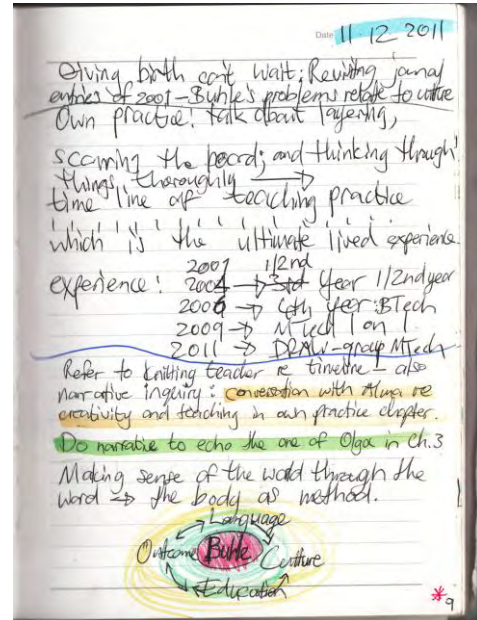 Date 11-12 2011
Giving birth can't wait: Revisiting journal
entries of 2001 - Buhle's problems relate to culture
Own practice: talk about layering,
scanning the board; and thinking through
things thoroughly →
time line of teaching practice
which is the ultimate lived experience.
2001 1/2nd
experience: 2004 → 3rd year 1/2nd year
2006 → 4th year: BTech
2009 → MTech 1 on 1
2011 → DRAW-group MTech
Refer to knitting teacher re timeline - also
narrative inquiry: conversation with Alma re
creativity and teaching in own practice chapter.
Do narrative to echo the one of Olga in Ch.3
Making sense of the world through the
word → the body as method.
Language
Outcome Buhle Culture
Education
*9